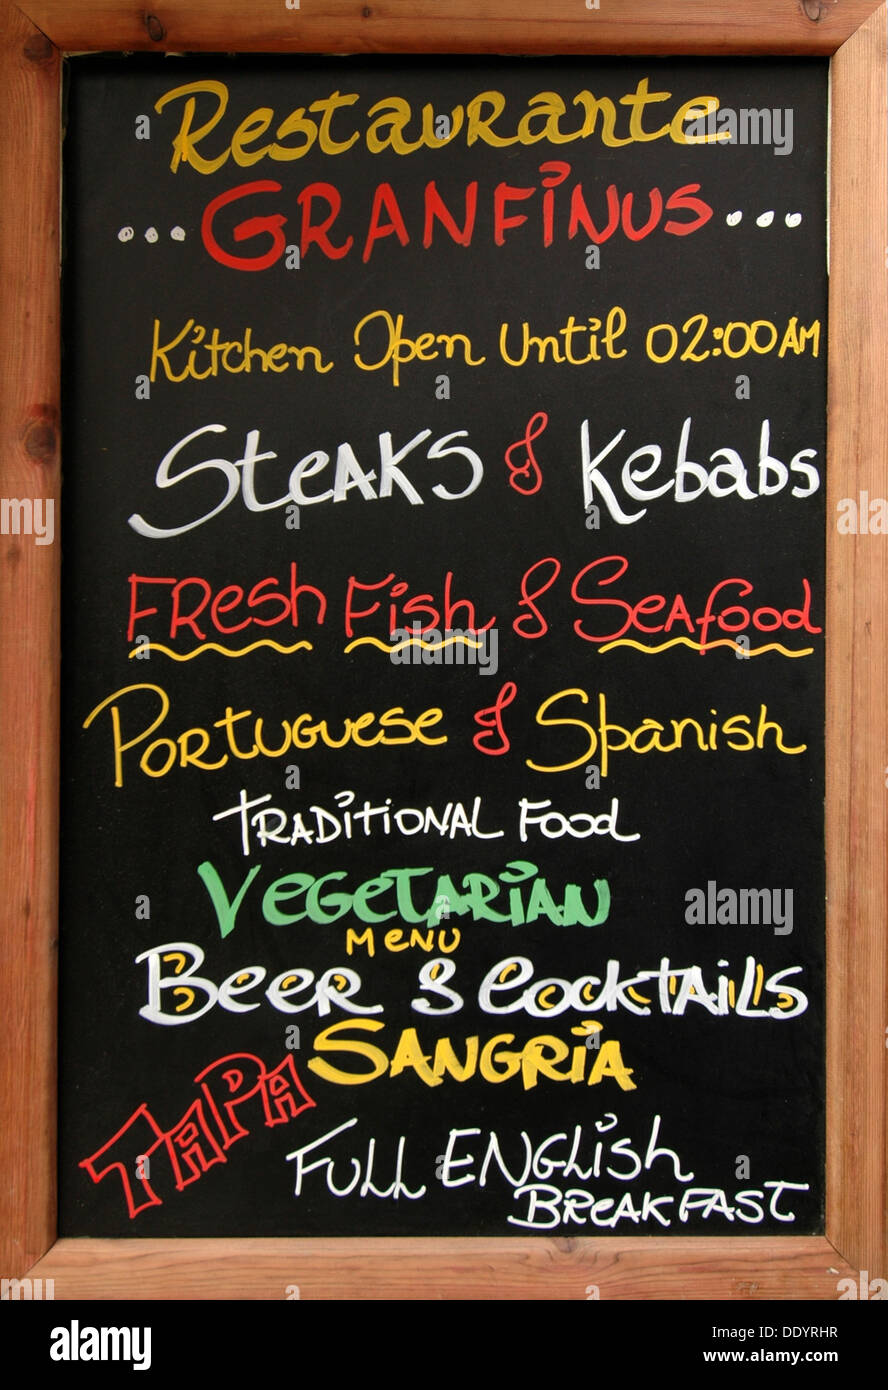 Restaurante
...GRANFINUS...
Kitchen Open Until 02:00AM
Steaks & Kebabs
Fresh Fish & Seafood
Portuguese & Spanish
Traditional Food
Vegetarian
Menu
Beer & Cocktails
Sangria
TAPA
Full English
Breakfast
alamy
Image ID: DDYRHR
www.alamy.com